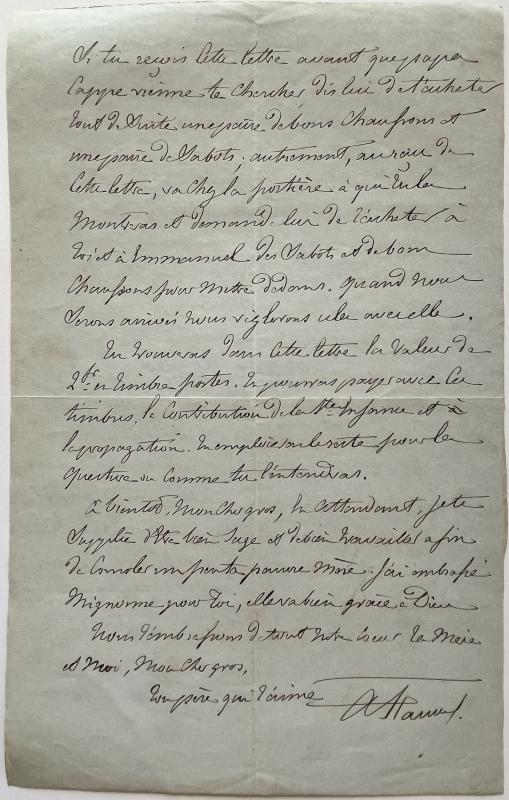 Si tu reçois cette lettre avant que papa
Cappe vienne te chercher dis lui de t'acheter
tout de suite une paire de bons chaussons et
une paire de sabots; autrement, au reçu de
cette lettre, va chez la portière à qui tu la
montreras et demande-lui de t'acheter à
toi et à Emmanuel des sabots et de bons
chaussons pour mettre dedans. Quand nous
serons arrivés nous réglerons cela avec elle.
Tu trouveras dans cette lettre la valeur de
2 fr en timbre postes. Tu pourras payer avec ces
timbres, la contribution de la Ste Enfance et à
la propagation. Tu emploieras le reste pour la
questure ou comme tu l'entendras.
à bientôt, mon cher gros, en attendant, je te
supplie d'être bien sage et de bien travailler afin
de consoler un peu ta pauvre mère. J'ai embrassé
Mignonne pour toi, elle va bien grâce à Dieu
Nous t'embrassons de tout notre cœur ta mère
et moi, mon cher gros,
Ton père qui t'aime